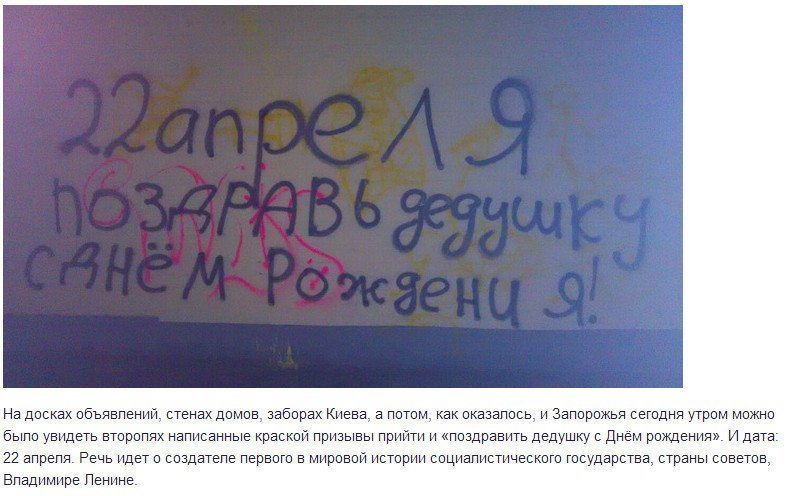 22 апреля
поздравь дедушку
с днём рождения!
На досках объявлений, стенах домов, заборах Киева, а потом, как оказалось, и Запорожья сегодня утром можно
было увидеть второпях написанные краской призывы прийти и «поздравить дедушку с Днём рождения». И дата:
22 апреля. Речь идет о создателе первого в мировой истории социалистического государства, страны советов,
Владимире Ленине.